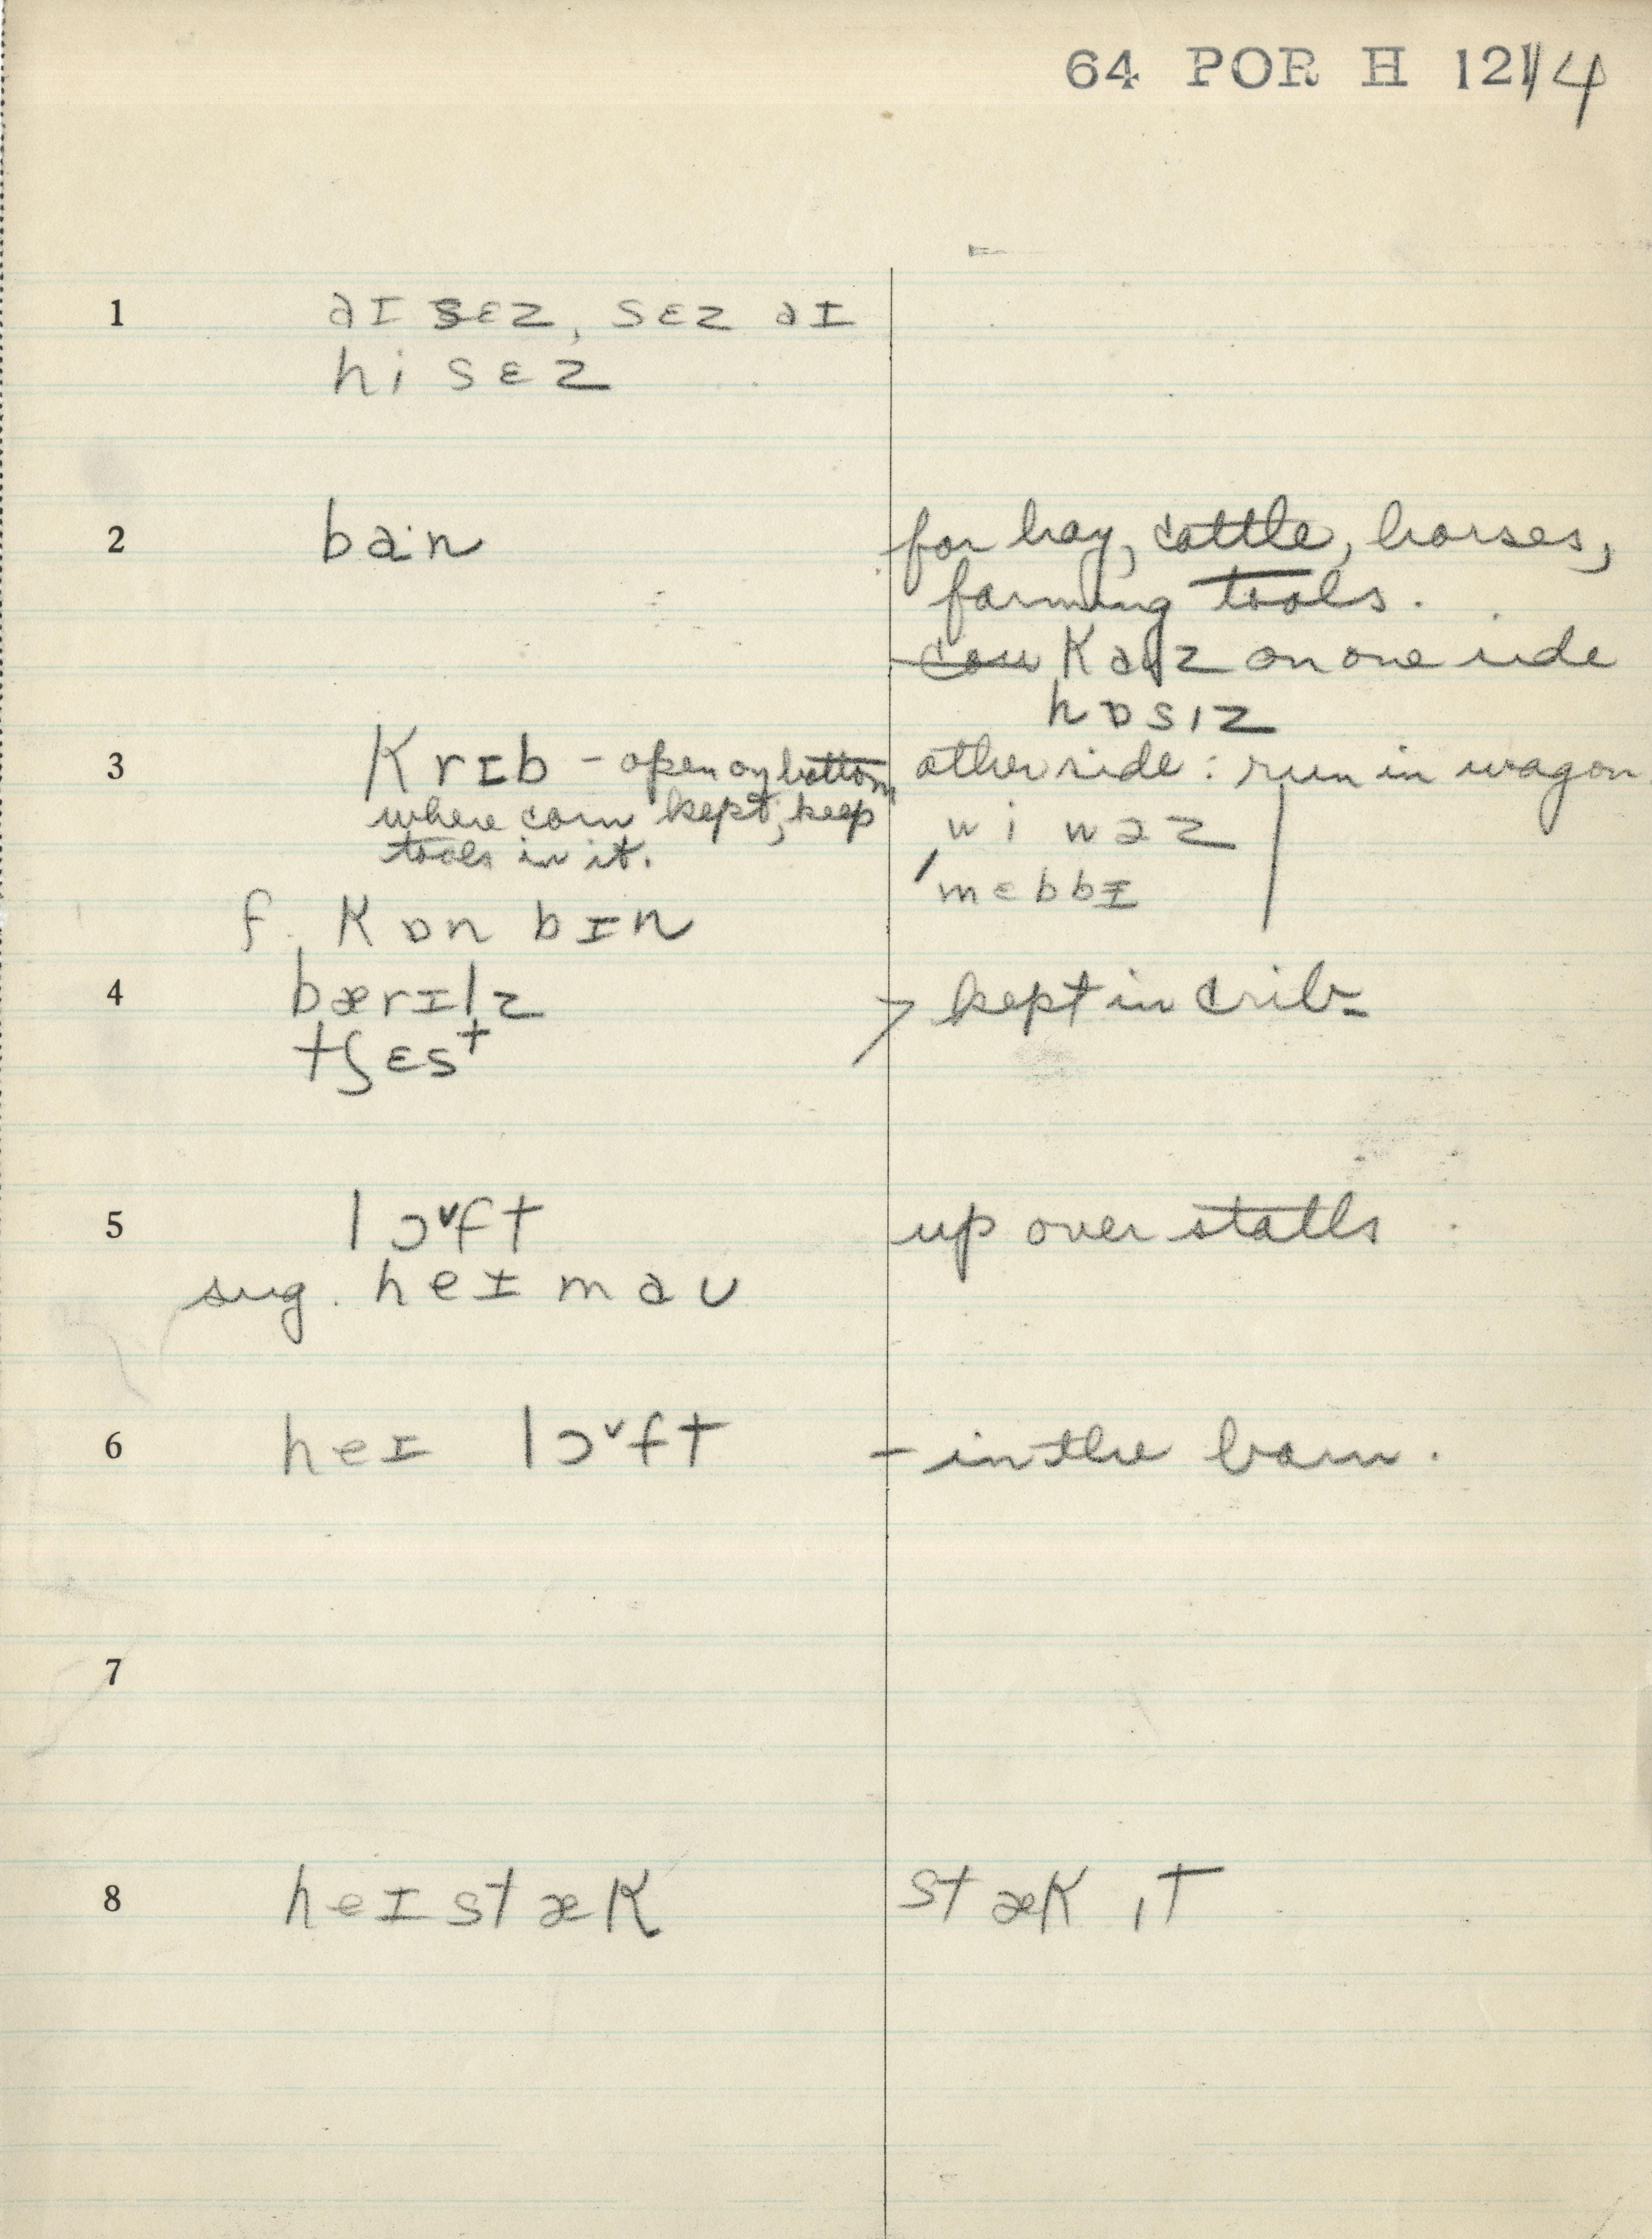 64 POR H 12114
1 aɪ sɛz, sɛz aɪ
hi sɛz
2 ba·n for hay, cattle, horses,
farming tools.
cow kaʊz on one side
hɒsɪz
3 krɪb – open on bottom other side: run in wagon
where corn kept, keep wi waz
tools in it. 'mɛbbɪ
f. kɒn bɪn
4 bærɪlz > kept in crib
tʃɛst
5 lɔ˅ft up over stalls
sug. heɪ maʊ
6 heɪ lɔ˅ft – in the barn.
7
8 heɪ stæk stæk ɪt